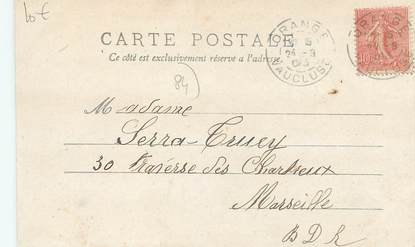 10€
CARTE POSTALE
Ce côté est exclusivement réservé à l'adresse
84
ORANGE
VAUCLUSE
Madame
Serra-Truey
30 Traverse des Chartreux
Marseille
B D R